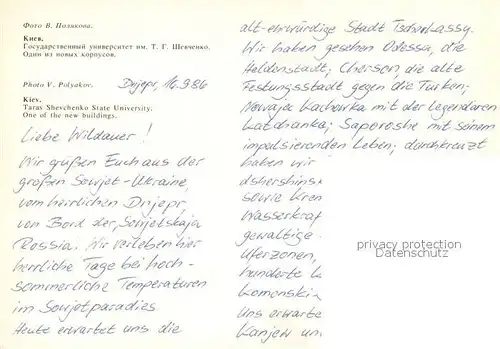 Фото В. Полякова.
Киев.
Государственный университет им. Т. Г. Шевченко.
Один из новых корпусов.
Photo V. Polyakov.
Kiev.
Taras Shevchenko State University.
One of the new buildings.
Dnjepr, 16.9.86
Liebe Wildauer!
Wir grüßen Euch aus der
großen Sowjet-Ukraine,
vom herrlichen Dnjepr,
von Bord der "Sowjetskaja
Rossia. Wir verleben hier
herrliche Tage bei hoch-
sommerliche Temperaturen
im Sowjetparadies
Heute erwartet uns die
alt-ehrwürdige Stadt Tscherkassy.
Wir haben gesehen Odessa, die
Heldenstadt; Cherson, die alte
Festungsstadt gegen die Türken;
Nowaja Kachowka mit der legendären
Katchanka; Saporoshe mit seinem
impulsierenden Leben; durchkreuzt
haben wir
dshershinsk
sowie Kren
Wasserkraf
gewaltige
Uferzonen,
hunderte k
Komonskin
uns erwarte
Kanjew un
privacy protection
Datenschutz